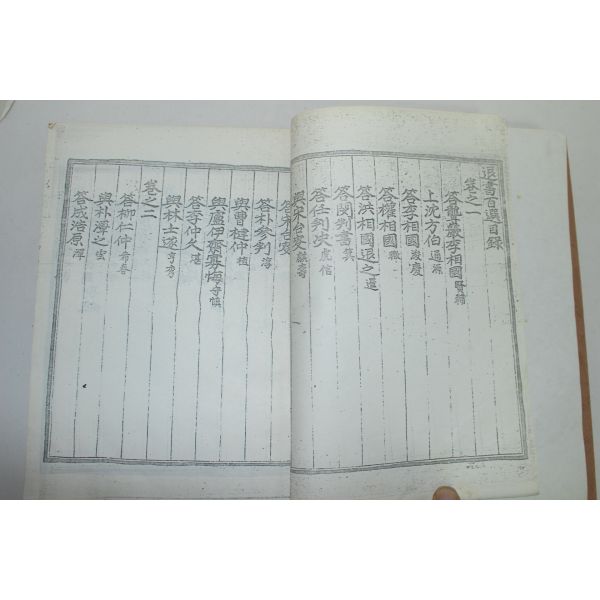 退書百選目錄
卷之一
答聾巖李相國賢輔
上沈方伯通源
答李相國浚慶
答權相國轍
答洪相國退之暹
答閔判書箕
答任判決虎臣
與宋台叟麒壽
答宋台叟
答朴參判淳
與曹楗仲植
與盧伊齋寡悔守愼
答李仲久湛
與林士遂亨秀
卷之二
答柳仁仲希春
與朴澤之雲
答成浩原渾
一